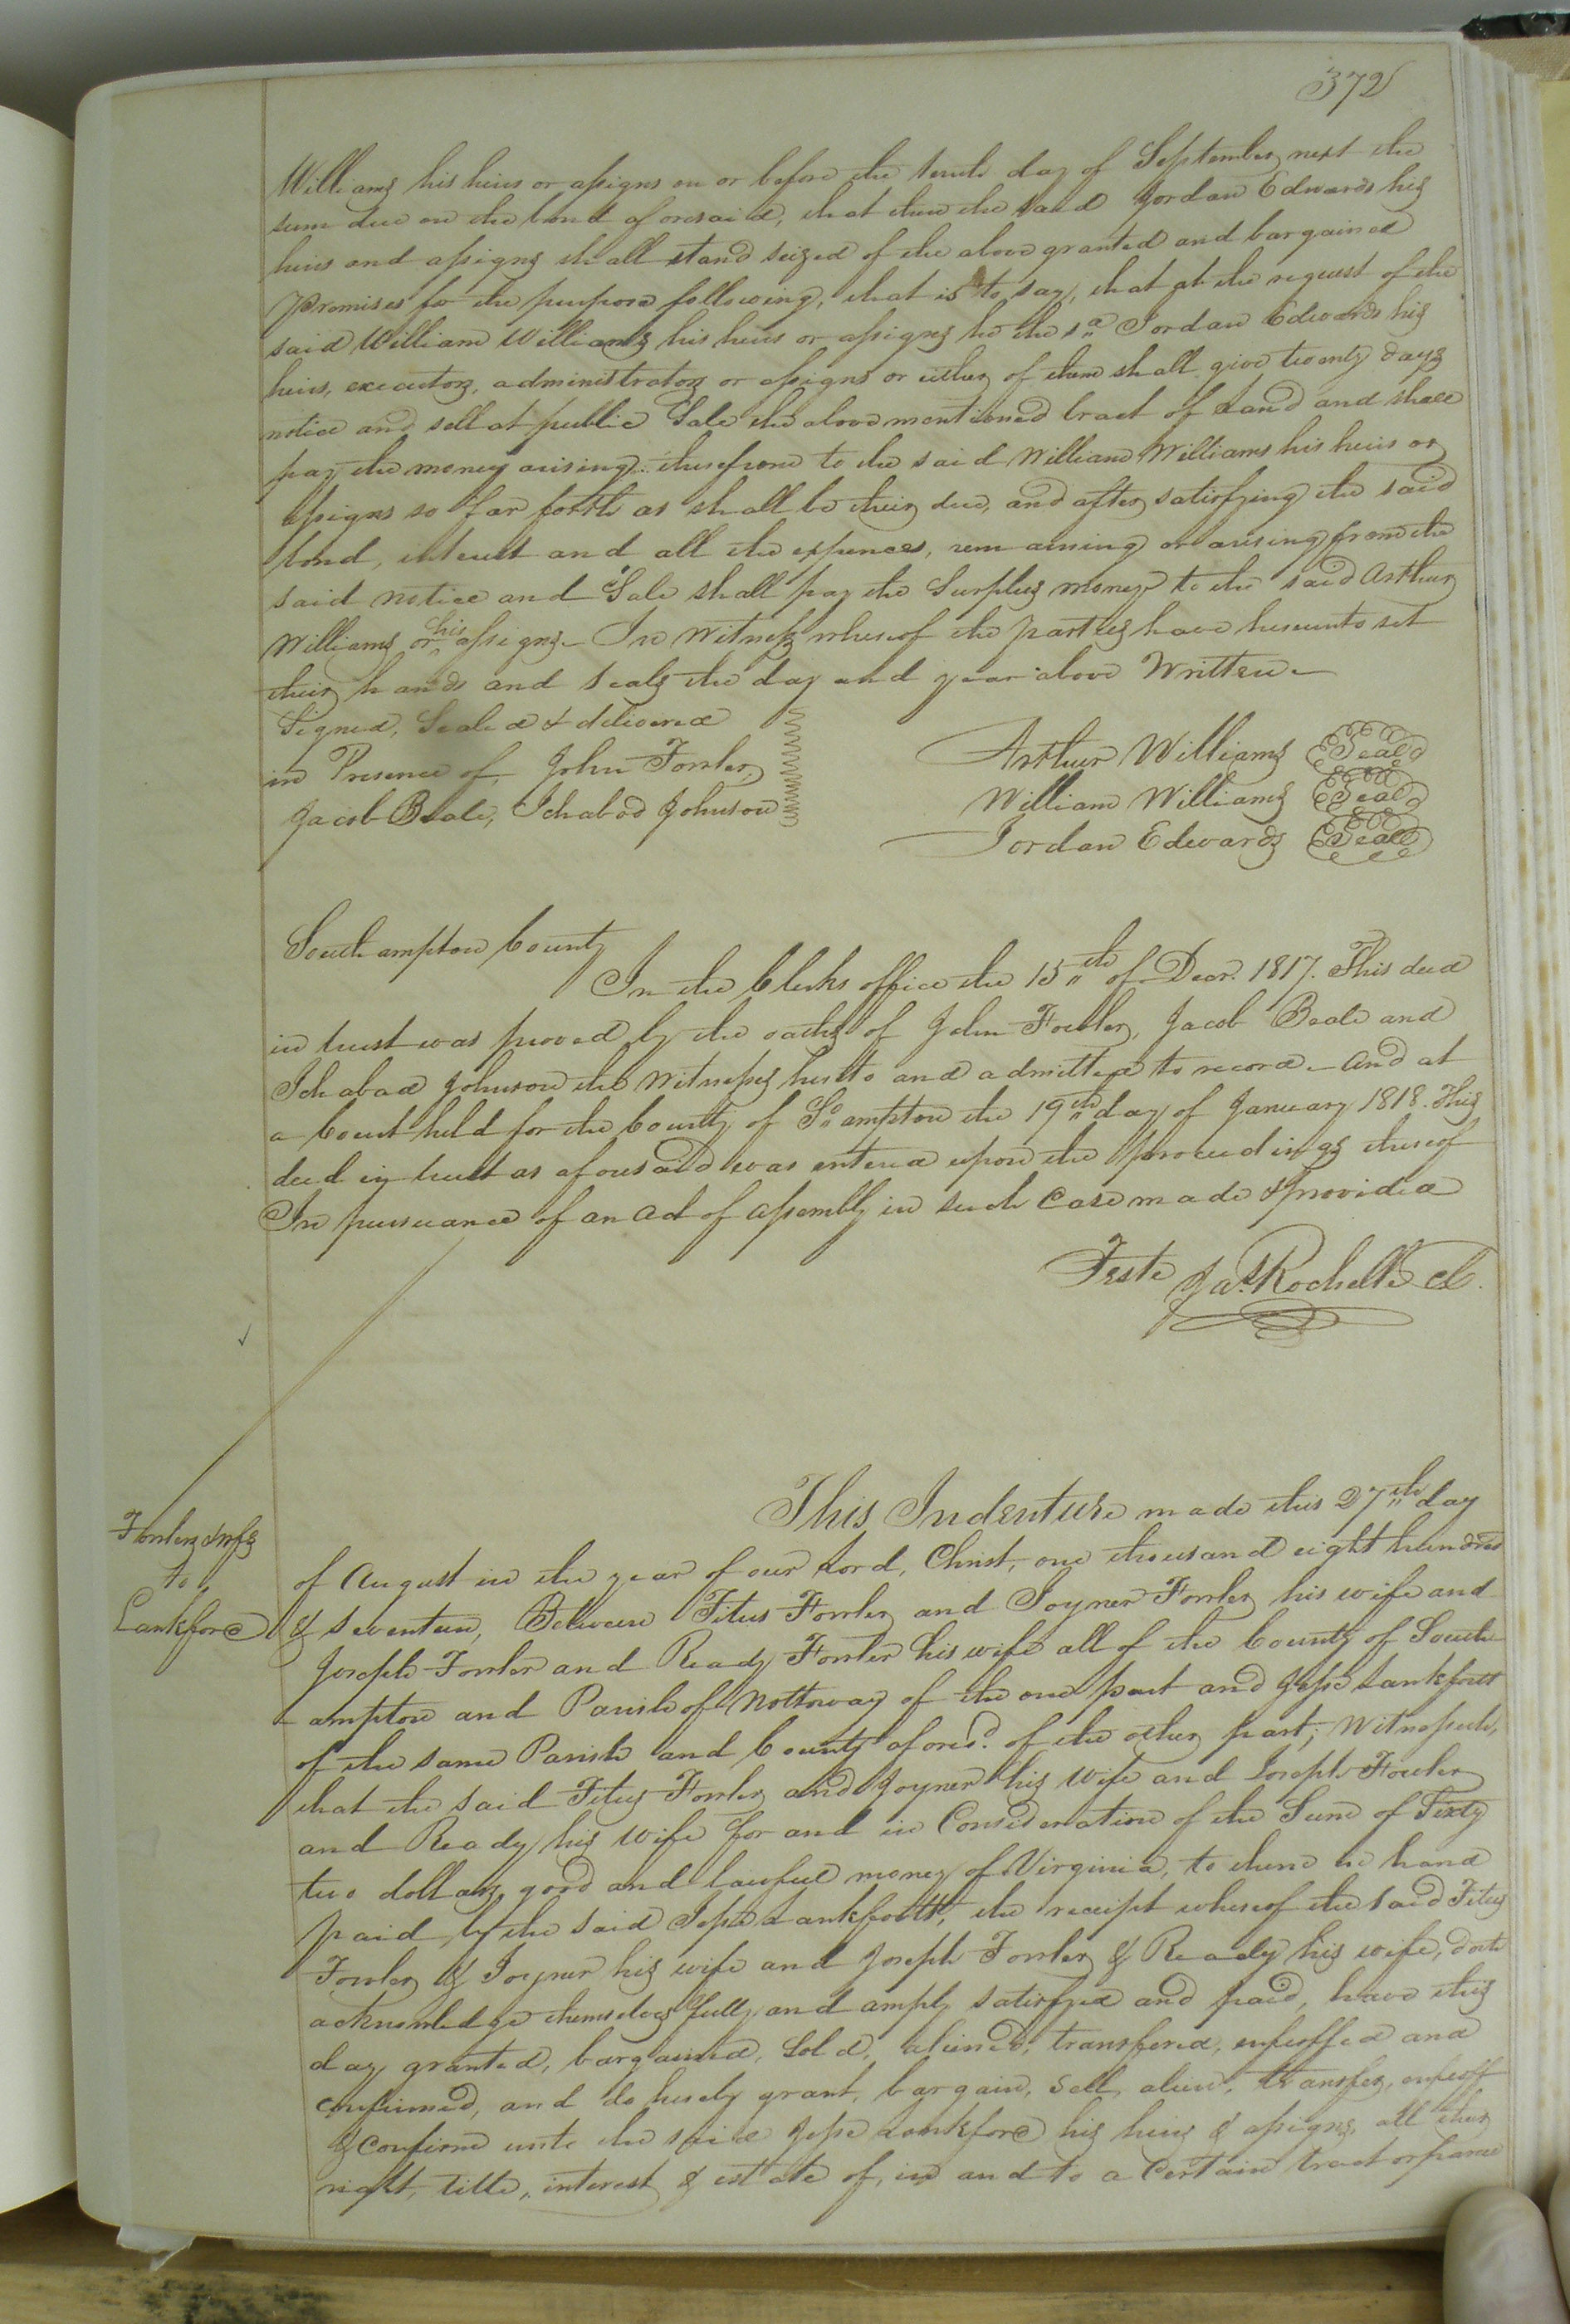 372
Williams his heirs or assigns on or before the tenth day of September next the
sum due on the bond aforesaid, that then the said Jordan Edwards his
heirs and assigns shall stand seized of the above granted and bargained
Premises for the purpose following, that is to say, that at the request of the
said William Williams his heirs or assigns he the sd Jordan Edwards his
heirs, executors, administrators or assigns or either of them shall give twenty days
notice and sell at public Sale the above mentioned tract of Land and shall
pay the money arising therefrom to the said William Williams his heirs or
assigns so far forth as shall be their due, and after satisfying the said
bond, interest and all the expences, remaining or arising from the
said notice and Sale shall pay the Surplus money to the said Arthur
Williams or his assigns. In Witness whereof the parties have hereunto set
their hands and seals the day and year above Written
Signed, Sealed & delivered
in Presence of, John Fowler,
Jacob Beale, Ichabod Johnson
Arthur Williams Seal
William Williams Seal
Jordan Edwards Seal
Southampton County
In the Clerks office the 15th of Decr. 1817. This deed
in trust was proved by the oaths of John Fowler, Jacob Beale and
Ichabad Johnson the Witnesses hereto and admitted to record. And at
a Court held for the County of So ampton the 19th day of January 1818. This
deed in trust as aforesaid was entered upon the proceedings thereof
In pursuance of an Act of Assembly in such Case made & provided
Teste Jas Rochelle cl.
Fowlers & wfs
to
Lankford
This Indenture made this 27th day
of August in the year of our Lord, Christ, one thousand eight hundred
& seventeen, Between Titus Fowler and Joyner Fowler his wife and
Joseph Fowler and Ready Fowler his wife all of the County of South
ampton and Parish of Nottoway of the one part and Jesse Lankford
of the same Parish and County aforesd. of the other part; Witnesseth,
that the said Titus Fowler and Joyner his Wife and Joseph Fowler
and Ready his Wife for and in Consideration of the Sum of Sixty
two dollars good and lawful money of Virginia, to them in hand
paid by the said Jesse Lankford, the receipt whereof the said Titus
Fowler & Joyner his wife and Joseph Fowler & Ready his wife, doth
acknowledge themselves fully and amply satisfyed and paid, have this
day granted, bargained, Sold, aliened, transfered, enfeoffed and
confirmed, and do hereby grant, bargain, Sell, alien, transfer, enfeoff
& confirm unto the said Jesse Lankford his heirs & assigns, all their
right, title, interest & estate of, in and to a Certain tract or parcel